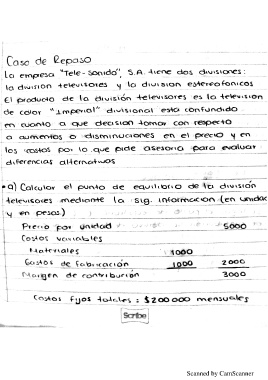 Caso de Repaso
La empresa "Tele-Sonido", S.A. tiene dos divisiones:
la division televisores y la division estereofonicos
El producto de la división televisores es la television
de color "Imperial" divisional esta confundido
en cuanto a que decision tomar con respecto
a aumentos o disminuciones en el precio y en
los costos por lo que pide asesoria para evaluar
diferencias alternativas
a) Calcular el punto de equilibrio de la división
televisores mediante la sig. informacion (en unidad
y en pesos)
Precio por unidad 5000
Costos variables
Materiales 1000
Gastos de fabricación 1000 2000
Margen de contribución 3000
Costos fijos totales: $200000 mensuales
Scribe
Scanned by CamScanner